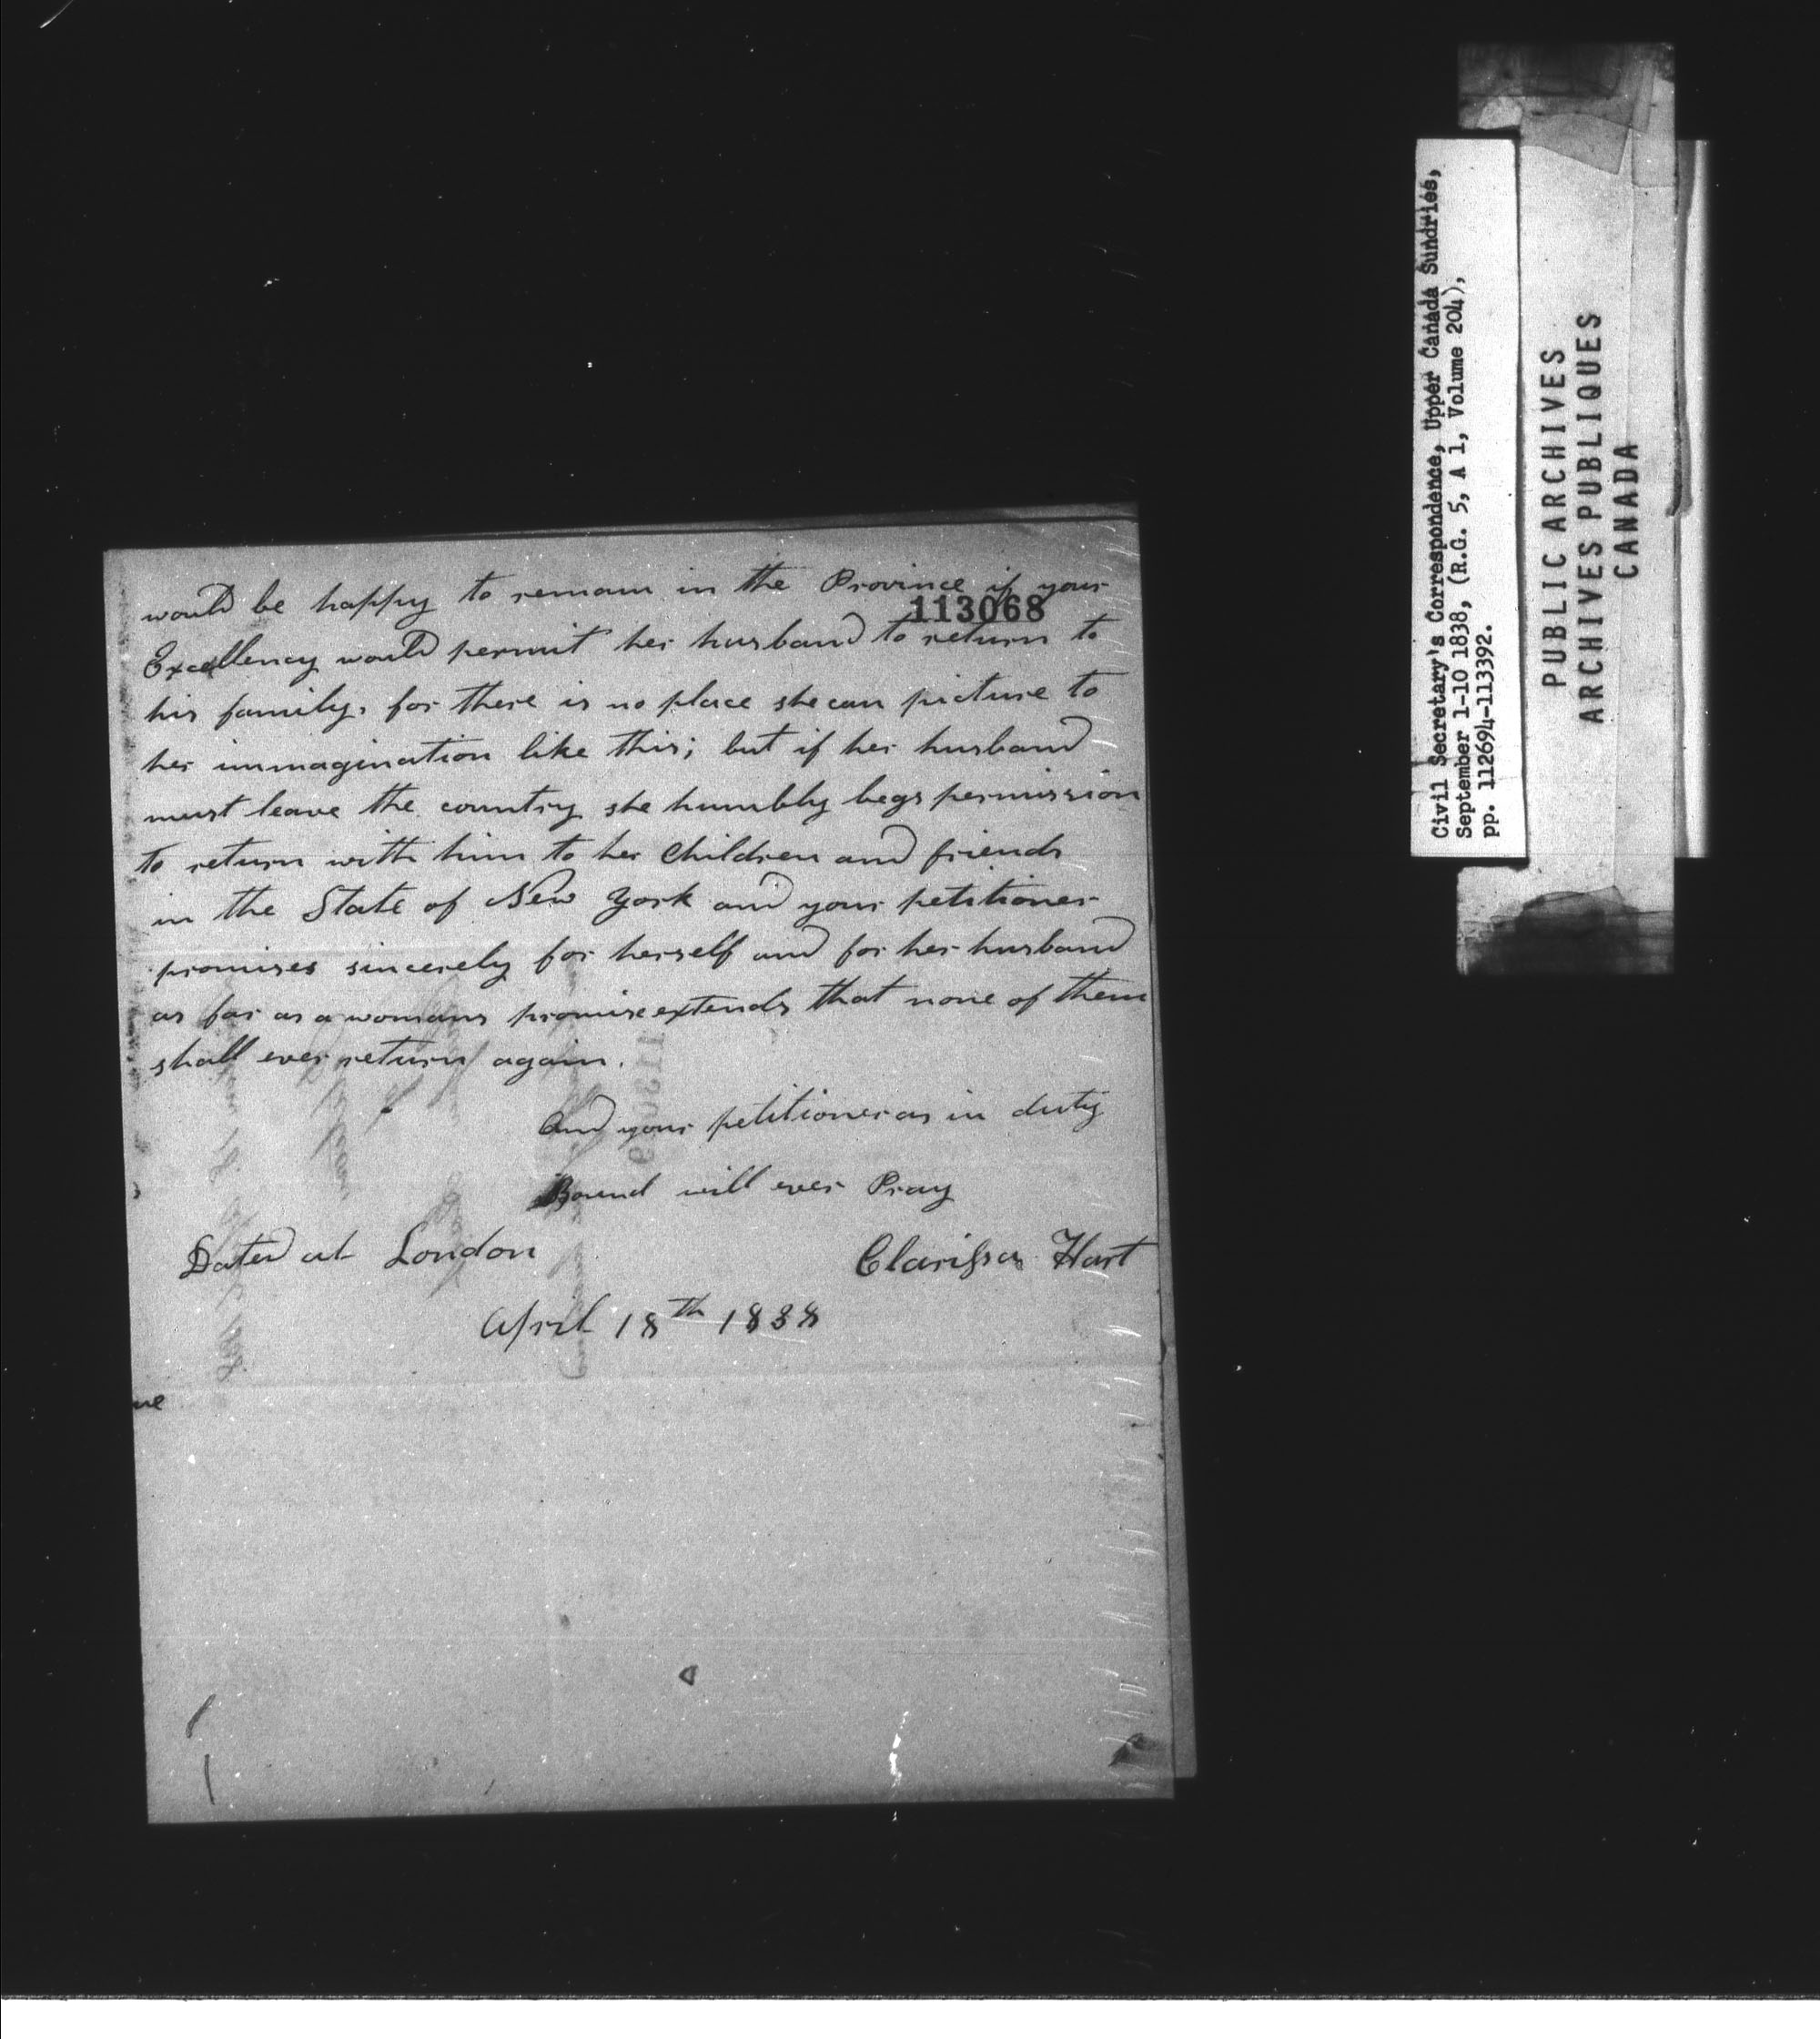 would be happy to remain in the Province if your
113068
Excellency would permit her husband to return to
his family, for there is no place she can picture to
her immagination like this; but if her husband
must leave the country she humbly begs permission
to return with him to her Children and friends
in the State of New York and your petitioner
promises sincerely for herself and for her husband
as far as a womans promise extends that none of them
shall ever return again.
And your petitioner as in duty
Bound will ever Pray
Dated at London
Clarissa Hart
April 18th 1838
Civil Secretary's Correspondence, Upper Canada Sundries,
September 1-10 1838, (R.G. 5, A 1, Volume 204),
pp. 112694-113392.
PUBLIC ARCHIVES
ARCHIVES PUBLIQUES
CANADA